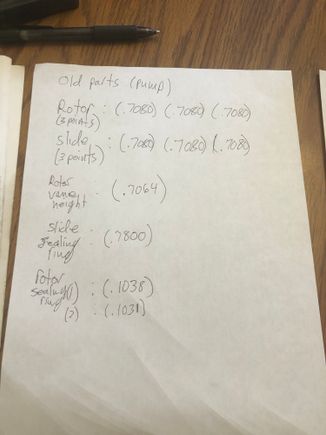 Old parts (pump)
Rotor : (.7080) (.7080) (.7080)
(3 points)
slide : (.7080) (.7080) (.7080)
(3 points)
Rotor
vane : (.7064)
height
slide
sealing : (.7800)
ring
rotor
sealing (1) : (.1038)
ring
(2) : (.1031)